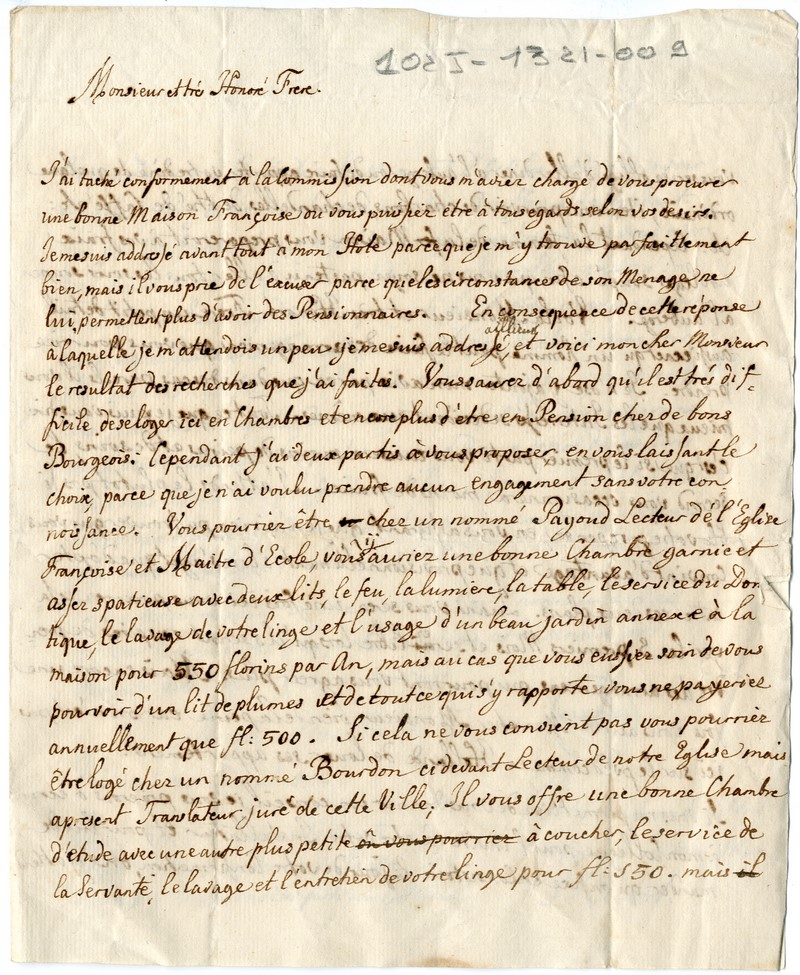 1025-1321-009
Monsieur et trés Honoré Frere.
J'ai taché conformement à la Commission dont vous m'aviez chargé de vous procurer
une bonne Maison Françoise ou vous puissiez etre à tous égards selon vos desirs.
Je me suis addressé avant tout à mon Hote parce que je m'y trouve parfaittement
bien, mais il vous prie de l'excuser parce que les circonstances de son Menage ne
lui permettent plus d'avoir des Pensionnaires. En consequence de cette réponse
à laquelle je m'attendois un peu je me suis addressé ailleurs, et voici mon cher Monsieur
le resultat des recherches que j'ai faites. Vous saurez d'abord qu'il est trés dif-
ficile de se loger ici en Chambres et encore plus d'étre en Pension chez de bons
Bourgeois: Cependant j'ai deux partis à vous proposer en vous laissant le
choix, parce que je n'ai voulu prendre aucun engagement sans votre con-
noissance. Vous pourriez être chez un nommé Payoud Lecteur de l'Eglise
Françoise et Maitre d'Ecole, vous y auriez une bonne Chambre garnie et
assez spatieuse avec deux lits, le feu, la lumière, la table, le service du Domes-
tique, le lavage de votre linge et l'usage d'un beau jardin annexe à la
maison pour 550 florins par An, mais au cas que vous eussiez soin de vous
pourvoir d'un lit de plumes et de tout ce qui s'y rapporte vous ne payeriez
annuellement que fl: 500. Si cela ne vous convient pas vous pourriez
être logé chez un nommé Bourdon ci devant Lecteur de notre Eglise mais
apresent Translateur juré de cette Ville; Il vous offre une bonne Chambre
d'etude avec une autre plus petite où vous pourriez à coucher, le service de
la Servante, le lavage et l'entretien de votre linge pour fl: 550. mais il